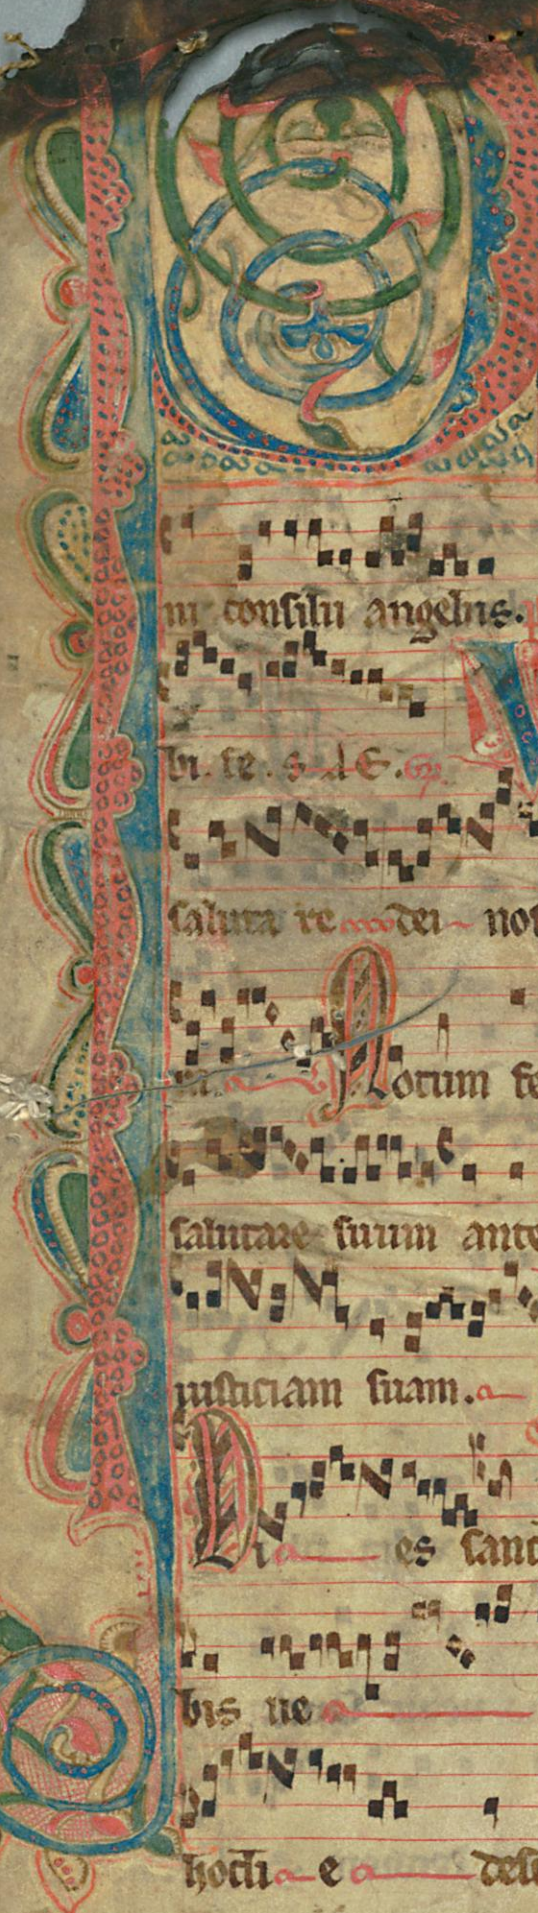 ni consilii angelus.
bi. te. s A E.
saluta re dei nos
Notum fe
salutare suum ante
iusticiam suam.
Di es sanc
bis ne
hodi e a des